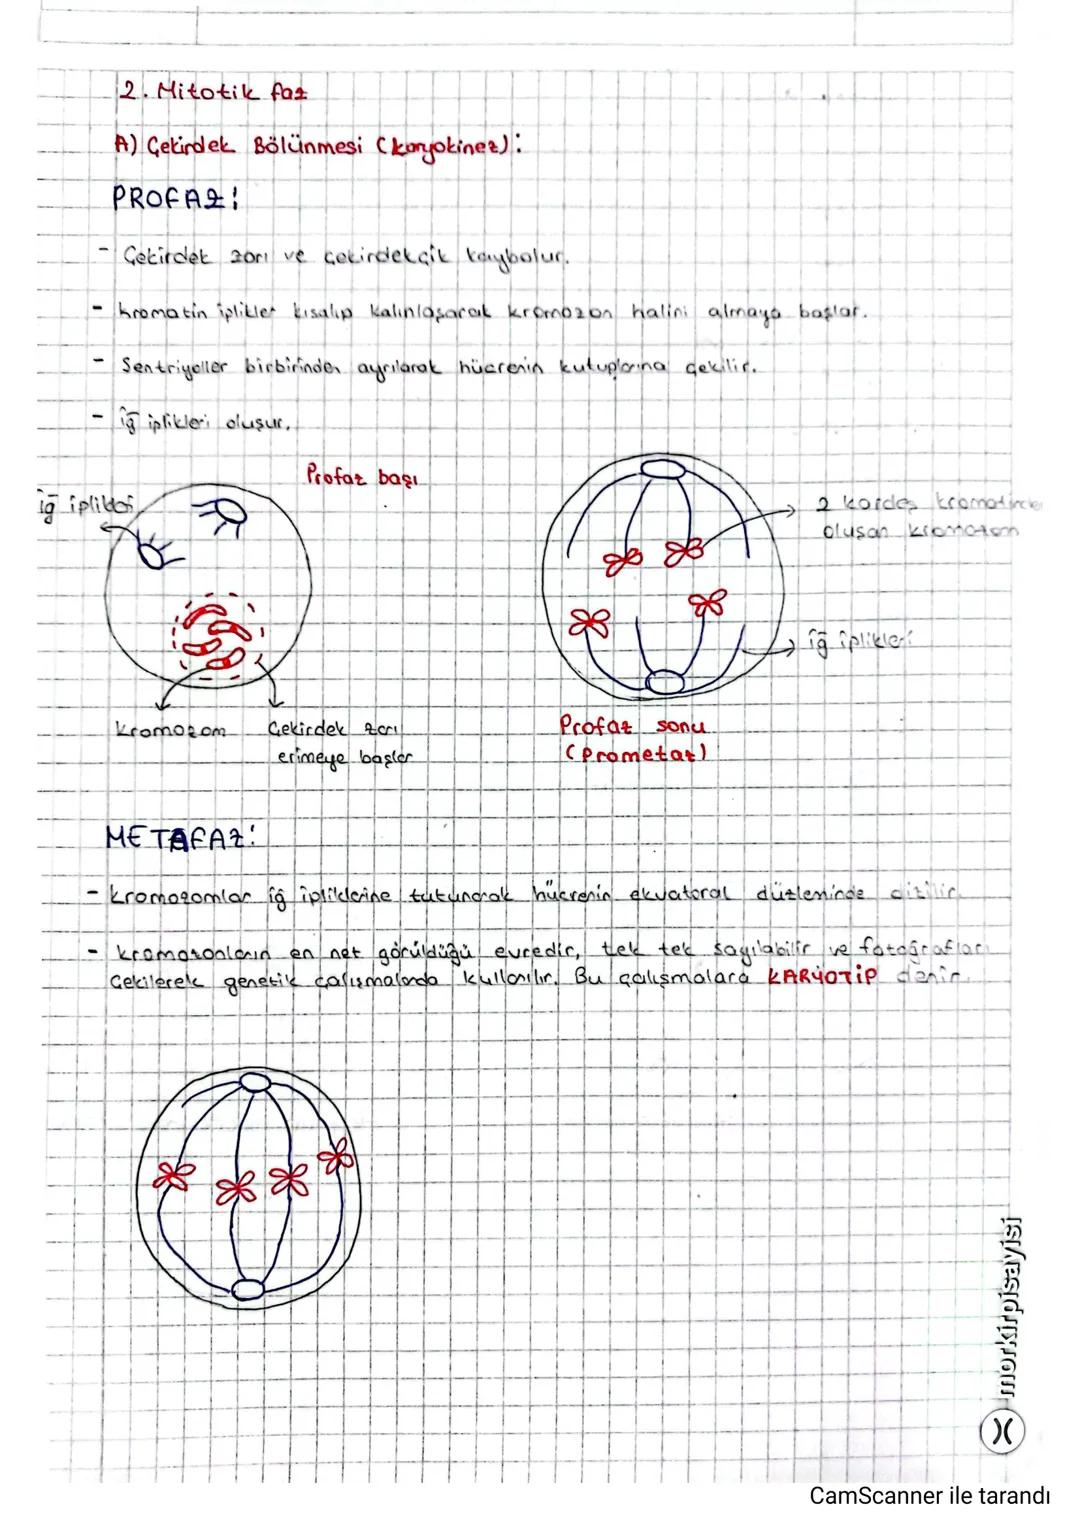 2. Mitotik faz
A) Çekirdek Bölünmesi (karyokinez):
PROFAZ:
- Çekirdek zarı ve çekirdekçik kaybolur.
- kromatin iplikler kısalıp kalınlaşarak kromozon halini almaya başlar.
- Sentriyoller birbirinden ayrılarak hücrenin kutuplarına çekilir.
- iğ iplikleri oluşur.
Profaz başı
iğ iplikleri
2 kardeş kromatinden
oluşan kromozom
iğ iplikleri
Kromozom
Çekirdek zarı
erimeye başlar
Profaz sonu
(Prometaz)
METAFAZ:
- kromozomlar iğ ipliklerine tutunarak hücrenin ekvatoral düzleminde dizilir.
- kromozonların en net görüldüğü evredir, tek tek sayılabilir ve fotoğrafları
çekilerek genetik çalışmalarda kullanılır. Bu çalışmalara KARYOTİP denir.
morkirpisayisi
CamScanner ile tarandı